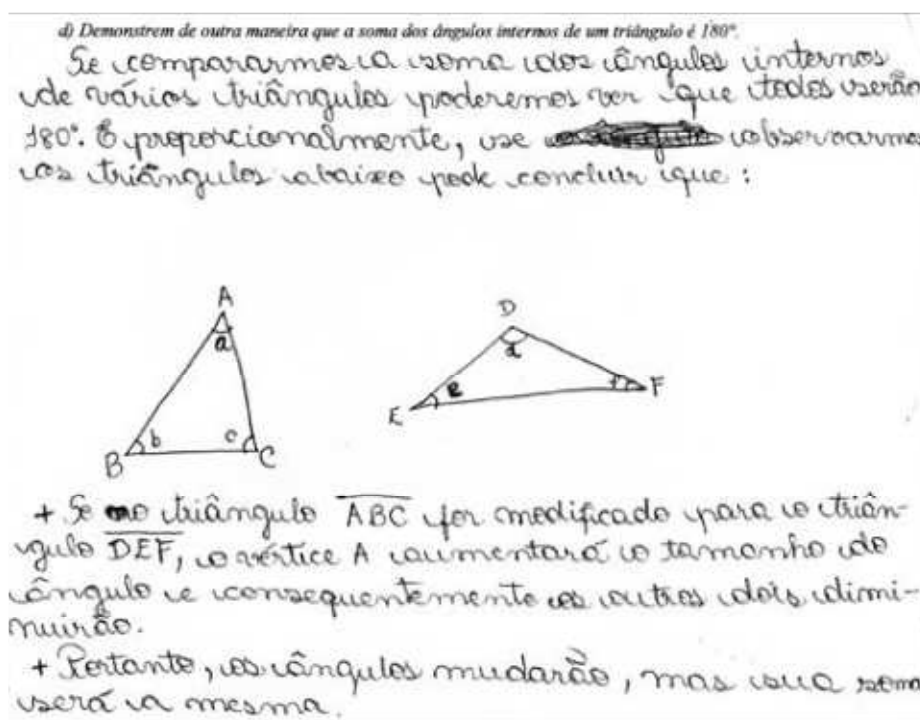 d) Demonstrem de outra maneira que a soma dos ângulos internos de um triângulo é 180°.
Se compararmos a soma dos ângulos internos
de vários triângulos poderemos ver que todos serão
180°. E proporcionalmente, se observarmos
os triângulos abaixo pode concluir que:
A
a
b
c
B
C
D
d
e
f
E
F
+ Se o triângulo ABC for modificado para o triân-
gulo DEF, o vértice A aumentará o tamanho do
ângulo e consequentemente os outros dois dimi-
nuirão.
+ Portanto, os ângulos mudarão, mas sua soma
será a mesma.